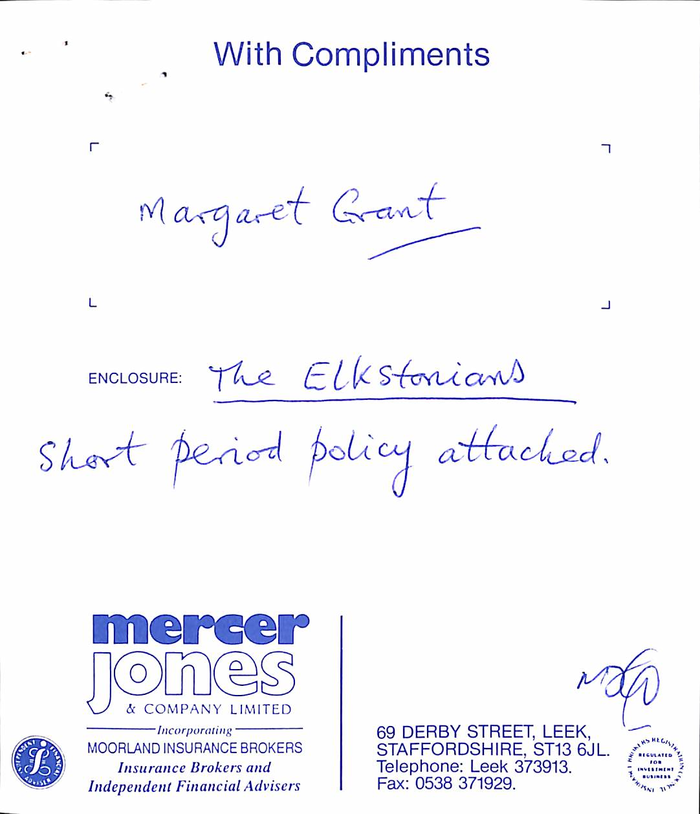 With Compliments
Margaret Grant
ENCLOSURE: The Elkstonians
Short period policy attached.
mercer
jones
& COMPANY LIMITED
Incorporating
MOORLAND INSURANCE BROKERS
Insurance Brokers and
Independent Financial Advisers
69 DERBY STREET, LEEK,
STAFFORDSHIRE, ST13 6JL.
Telephone: Leek 373913.
Fax: 0538 371929.
REGULATED
FOR
INVESTMENT
BUSINESS